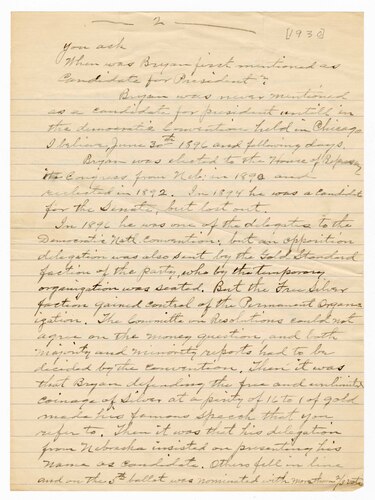 — 2 —
[1930]
You ask
When was Bryan first mentioned as
Candidate for President?
Bryan was never mentioned
as a candidate for president untill in
the democratic Convention held in Chicago
I believe, June 30th 1896 and following days.
Bryan was elected to the House of
Congress from Neb. in 1890 and
reelected in 1892. In 1894 he was a candidate
for the Senate, but lost out.
In 1896 he was one of the delegates to the
Democratic Natl Convention, but an opposition
delegation was also sent by the Gold Standard
faction of the party, who by the temporary
organization was seated. But the Free Silver
faction gained control of the Permanent Organ-
ization. The Committee on Resolutions could not
agree on the money question, and both
majority and minority reports had to be
decided by the convention. Then it was
that Bryan defending the free and unlimited
coinage of Silver at a parity of 16 to 1 of gold
made his famous speech that you
refer to. Then it was that his delegation
from Nebraska insisted on presenting his
name as candidate. Others fell in line
and on the 5th ballot was nominated with more than 2/3